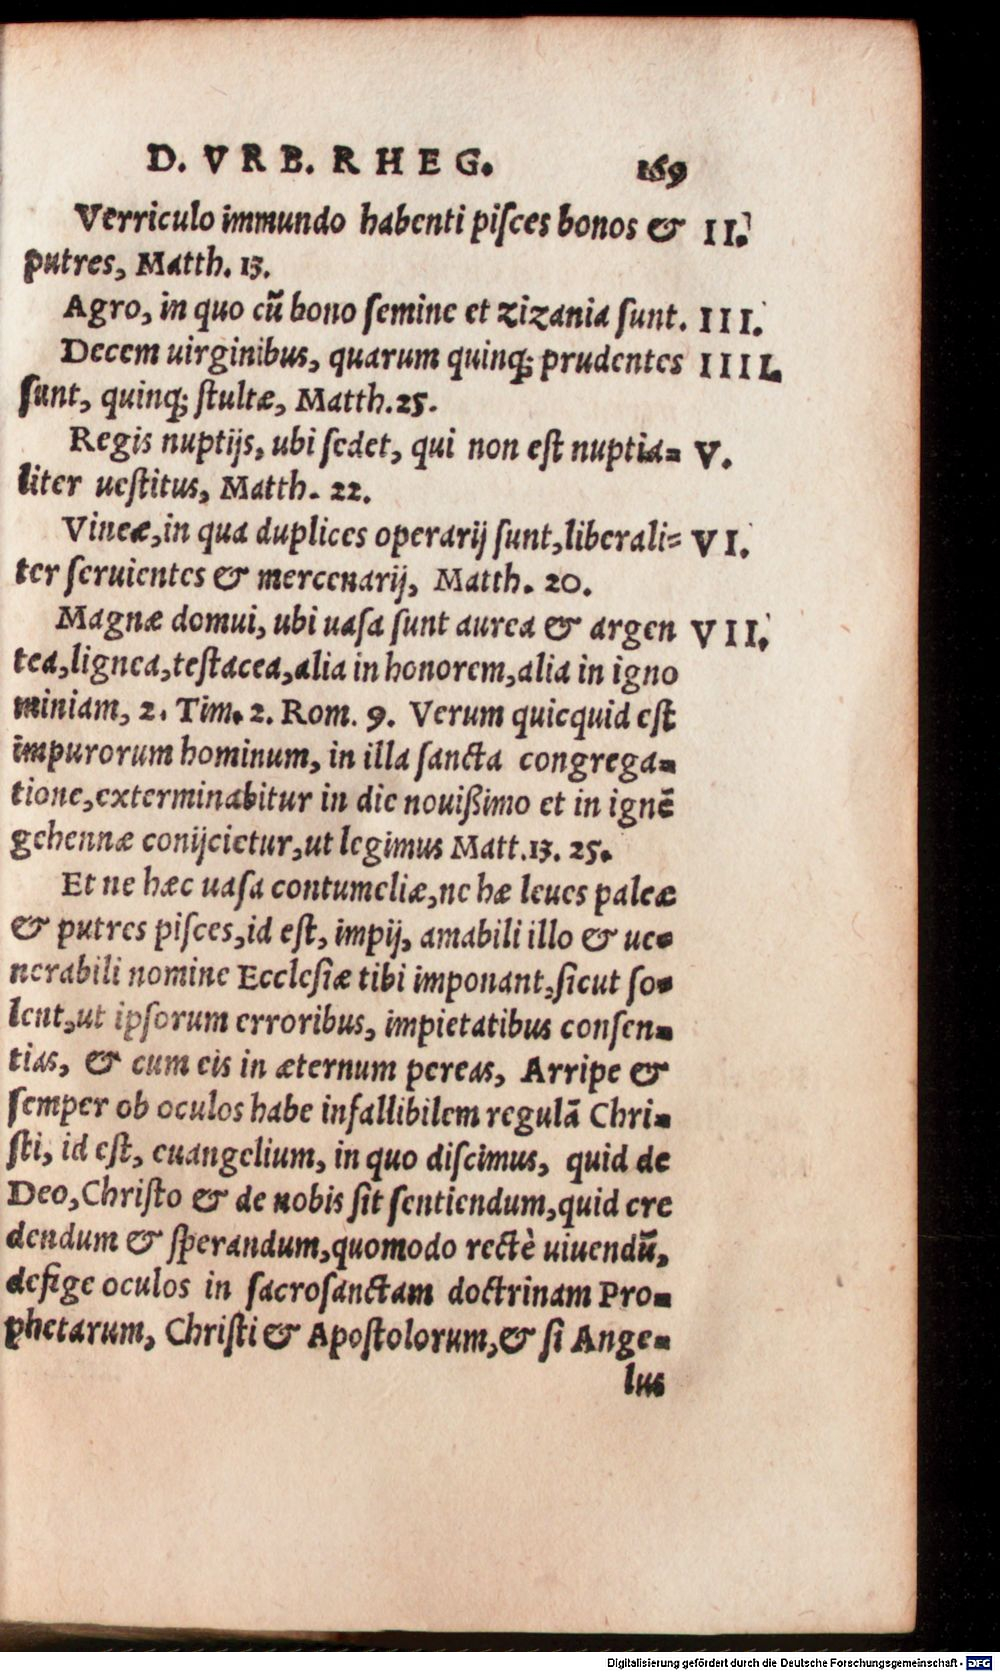 D. VRB. RHEG. 169
Verriculo immundo habenti piſces bonos & II.
putres, Matth. 13.
Agro, in quo cũ bono ſemine et zizania ſunt. III.
Decem uirginibus, quarum quinq; prudentes IIII.
ſunt, quinq; ſtultæ, Matth. 25.
Regis nuptijs, ubi ſedet, qui non eſt nuptia= V.
liter ueſtitus, Matth. 22.
Vineæ, in qua duplices operarij ſunt, liberali= VI.
ter ſeruientes & mercenarij, Matth. 20.
Magnæ domui, ubi uaſa ſunt aurea & argen VII.
tea, lignea, teſtacea, alia in honorem, alia in igno
miniam, 2. Tim. 2. Rom. 9. Verum quicquid eſt
impurorum hominum, in illa ſancta congrega=
tione, exterminabitur in die nouißimo et in ignẽ
gehennæ conijcietur, ut legimus Matt. 13. 25.
Et ne hæc uaſa contumeliæ, ne hæ leues paleæ
& putres piſces, id eſt, impij, amabili illo & ue=
nerabili nomine Eccleſiæ tibi imponant, ſicut ſo=
lent, ut ipſorum erroribus, impietatibus conſen=
tias, & cum eis in æternum pereas, Arripe &
ſemper ob oculos habe infallibilem regulã Chri=
ſti, id eſt, euangelium, in quo diſcimus, quid de
Deo, Chriſto & de nobis ſit ſentiendum, quid cre
dendum & ſperandum, quomodo rectè uiuendũ,
defige oculos in ſacroſanctam doctrinam Pro=
phetarum, Chriſti & Apoſtolorum, & ſi Ange=
lus
Digitalisierung gefördert durch die Deutsche Forschungsgemeinschaft - DFG